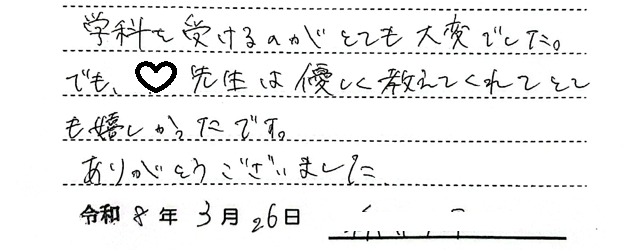 学科を受けるのがとても大変でした。
でも、♡先生は優しく教えてくれてとて
も嬉しかったです。
ありがとうございました
令和8年3月26日